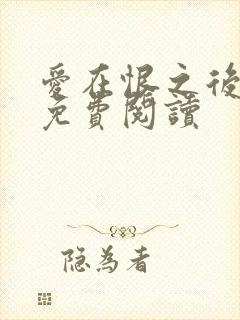 愛在恨之後
免費閱讀
隐为者